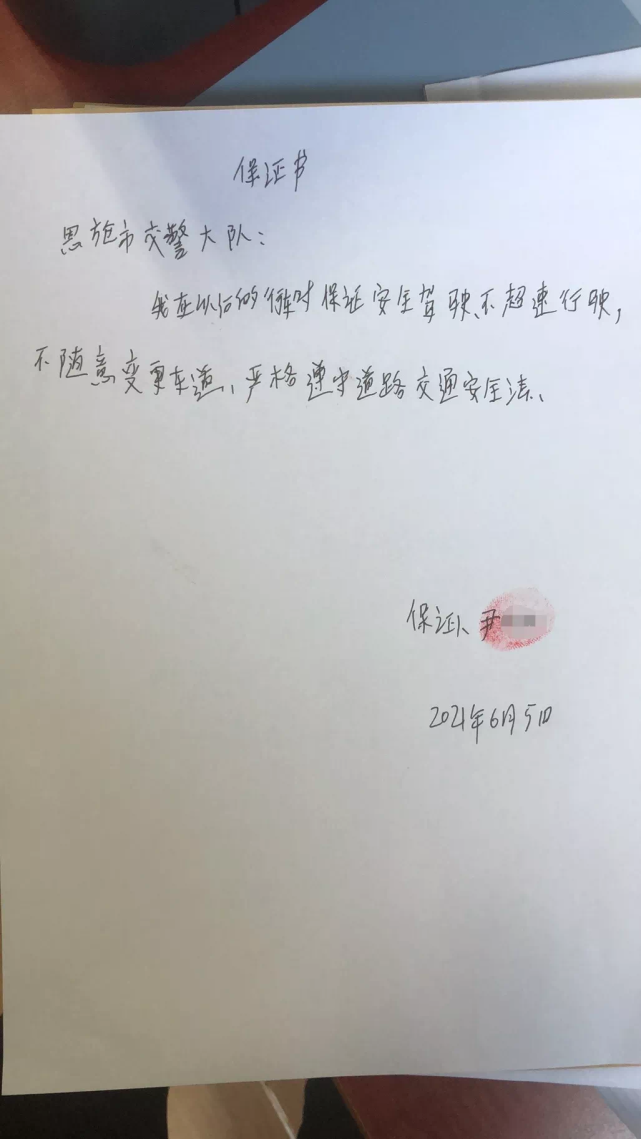 保证书
恩施市交警大队：
我在以后的行车时保证安全驾驶、不超速行驶，
不随意变更车道、严格遵守道路交通安全法、
保证人 尹
2021年6月5日